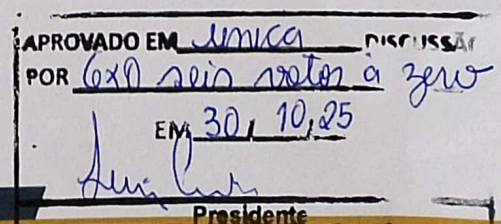 APROVADO EM unica DISCUSSÃO
POR 6x0 seis votos à zero
EM 30, 10, 25
Presidente